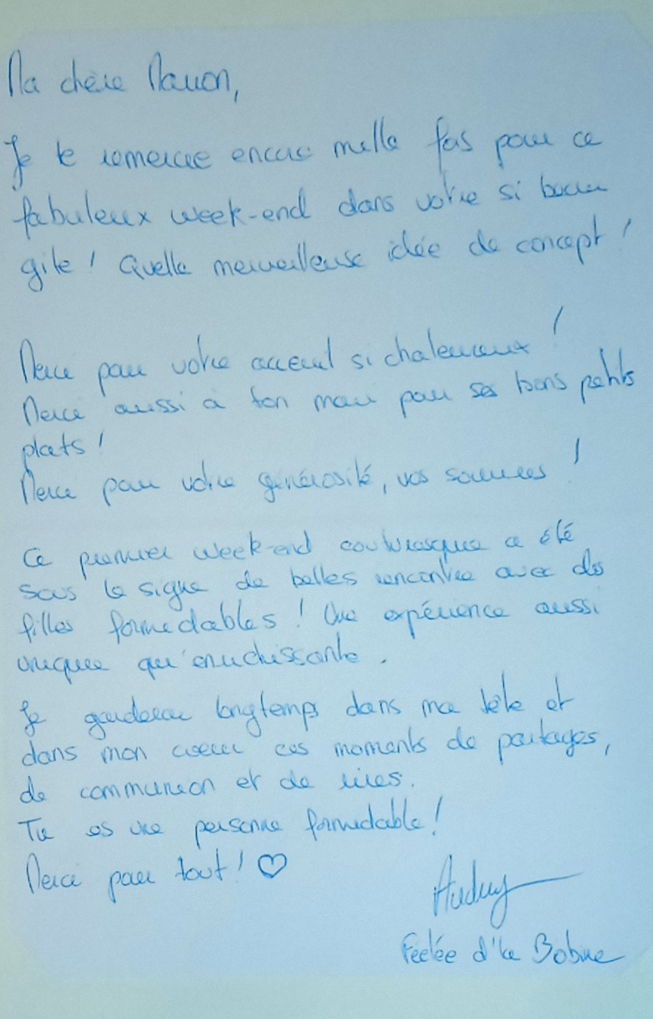 Ma chère Manon,
Je te remercie encore mille fois pour ce
fabuleux week-end dans votre si beau
gite ! Quelle merveilleuse idée de concept !
Merci pour votre accueil si chaleureux !
Merci aussi à ton mari pour ses bons petits
plats !
Merci pour votre générosité, vos sourires !
Ce premier week-end couturesque a été
sous le signe de belles rencontres avec des
filles formidables ! Une expérience aussi
unique qu'enrichissante.
Je garderai longtemps dans ma tête et
dans mon coeur ces moments de partages,
de communion et de rires.
Tu es une personne formidable !
Merci pour tout ! ♡
Audrey
Feelée d'la Bobine